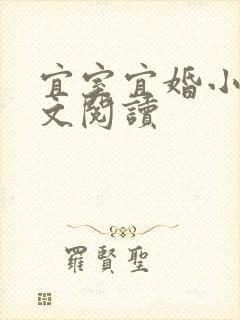 宜室宜婚小
文閱讀
羅賢聖